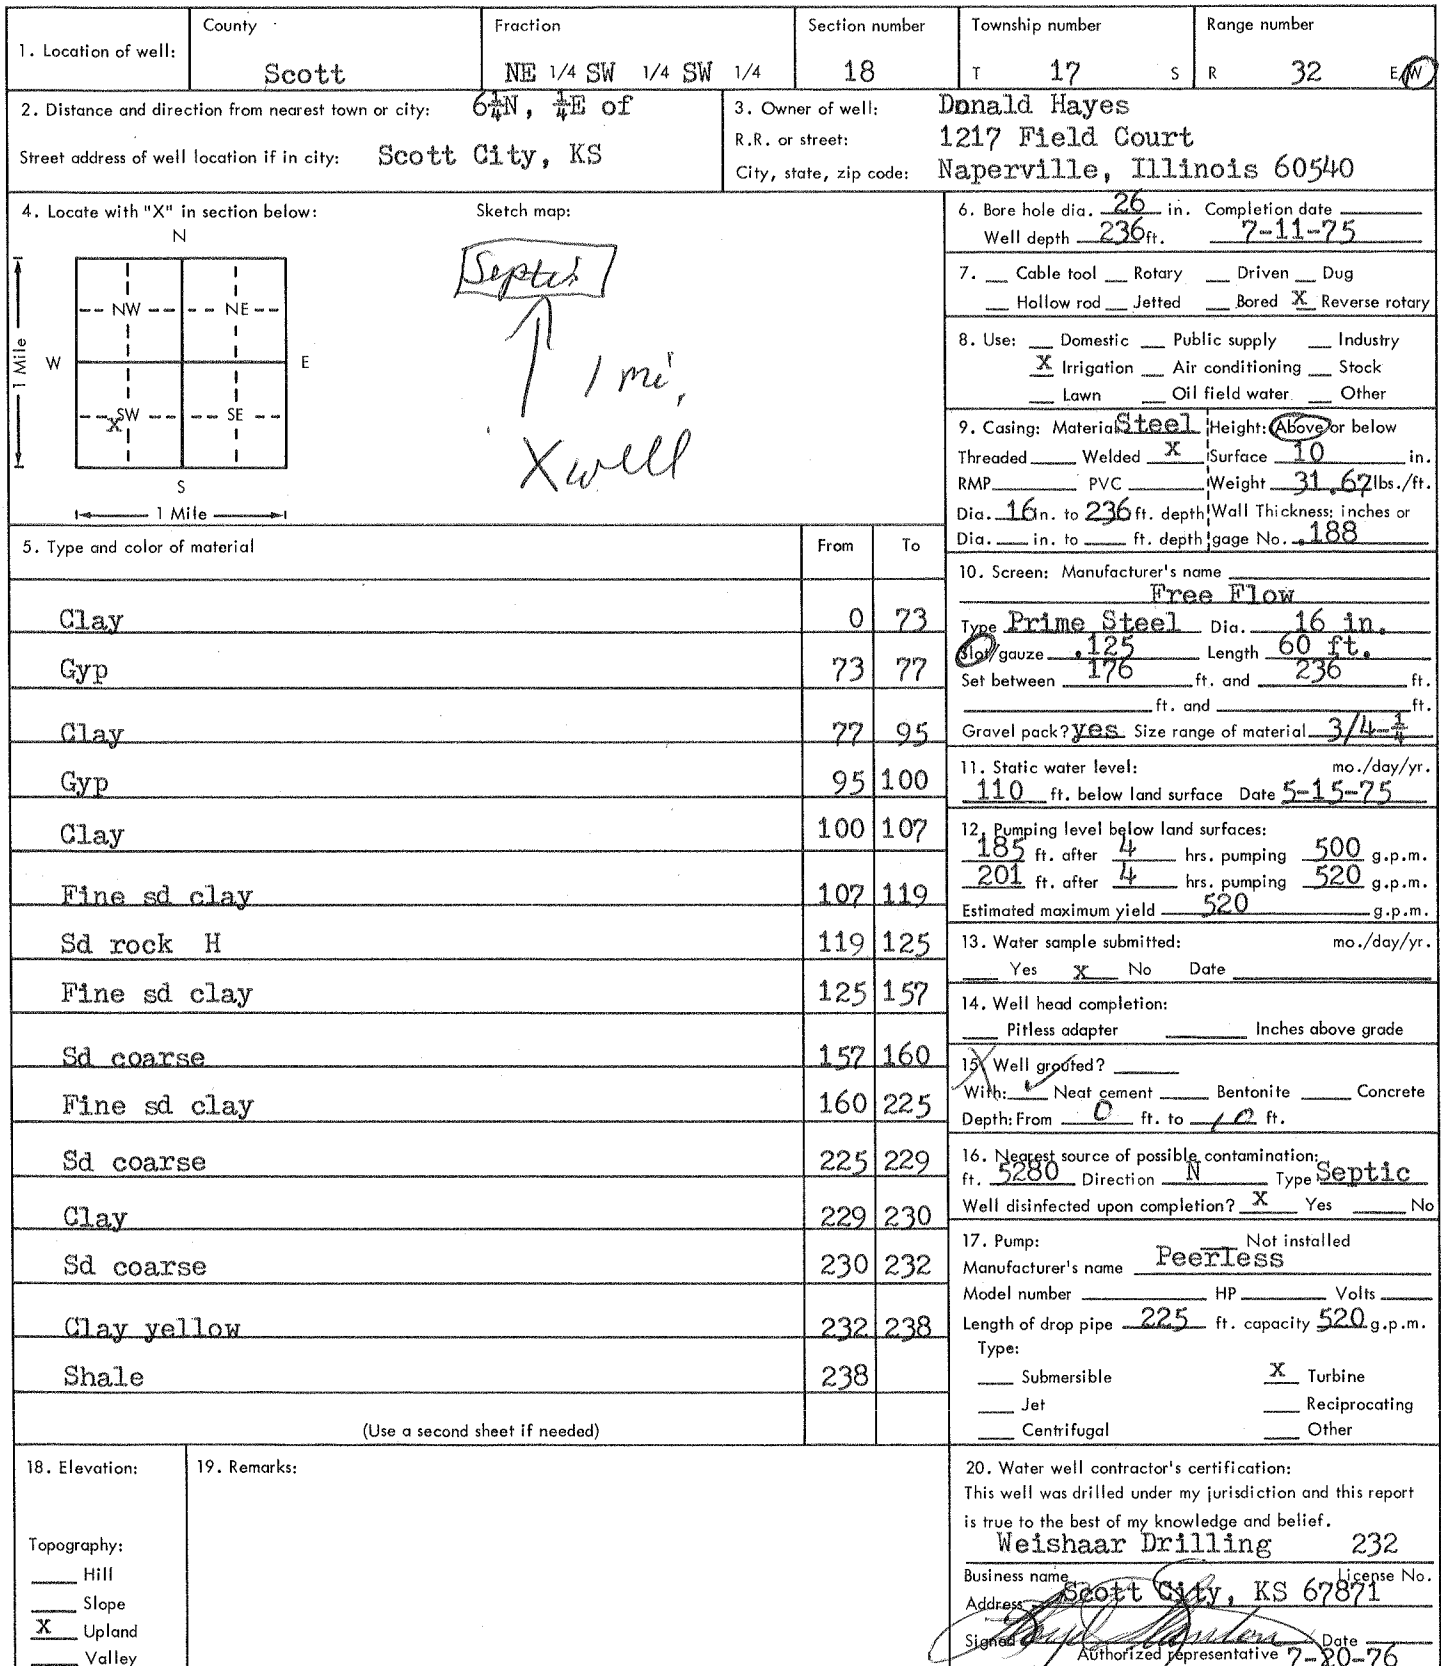 1. Location of well:
County
Scott
Fraction
NE 1/4 SW 1/4 SW 1/4
Section number
18
Township number
T 17 S
Range number
R 32 E/W
2. Distance and direction from nearest town or city: 6¼N, ¼E of
Street address of well location if in city: Scott City, KS
3. Owner of well: Donald Hayes
R.R. or street: 1217 Field Court
City, state, zip code: Naperville, Illinois 60540
4. Locate with "X" in section below:
N
NW NE
W E
X SW SE
S
1 Mile
1 Mile
Sketch map:
Septic
1 mi.
X well
5. Type and color of material From To
Clay 0 73
Gyp 73 77
Clay 77 95
Gyp 95 100
Clay 100 107
Fine sd clay 107 119
Sd rock H 119 125
Fine sd clay 125 157
Sd coarse 157 160
Fine sd clay 160 225
Sd coarse 225 229
Clay 229 230
Sd coarse 230 232
Clay yellow 232 238
Shale 238
(Use a second sheet if needed)
6. Bore hole dia. 26 in. Completion date
Well depth 236 ft. 7-11-75
7. Cable tool Rotary Driven Dug
Hollow rod Jetted Bored X Reverse rotary
8. Use: Domestic Public supply Industry
X Irrigation Air conditioning Stock
Lawn Oil field water Other
9. Casing: Material Steel Height: Above or below
Threaded Welded X Surface 10 in.
RMP PVC Weight 31.67 lbs./ft.
Dia. 16 in. to 236 ft. depth Wall Thickness: inches or
Dia. in. to ft. depth gage No. .188
10. Screen: Manufacturer's name
Free Flow
Type Prime Steel Dia. 16 in.
Slot/gauze .125 Length 60 ft.
Set between 176 ft. and 236 ft.
ft. and ft.
Gravel pack? yes Size range of material 3/4-¼
11. Static water level: mo./day/yr.
110 ft. below land surface Date 5-15-75
12. Pumping level below land surfaces:
185 ft. after 4 hrs. pumping 500 g.p.m.
201 ft. after 4 hrs. pumping 520 g.p.m.
Estimated maximum yield 520 g.p.m.
13. Water sample submitted: mo./day/yr.
Yes X No Date
14. Well head completion:
Pitless adapter Inches above grade
15. Well grouted?
With: ✓ Neat cement Bentonite Concrete
Depth: From 0 ft. to 10 ft.
16. Nearest source of possible contamination:
ft. 5280 Direction N Type Septic
Well disinfected upon completion? X Yes No
17. Pump: Not installed
Manufacturer's name Peerless
Model number HP Volts
Length of drop pipe 225 ft. capacity 520 g.p.m.
Type:
Submersible X Turbine
Jet Reciprocating
Centrifugal Other
18. Elevation:
Topography:
Hill
Slope
X Upland
Valley
19. Remarks:
20. Water well contractor's certification:
This well was drilled under my jurisdiction and this report
is true to the best of my knowledge and belief.
Weishaar Drilling 232
Business name License No.
Address Scott City, KS 67871
Signed Date
Authorized representative 7-20-76